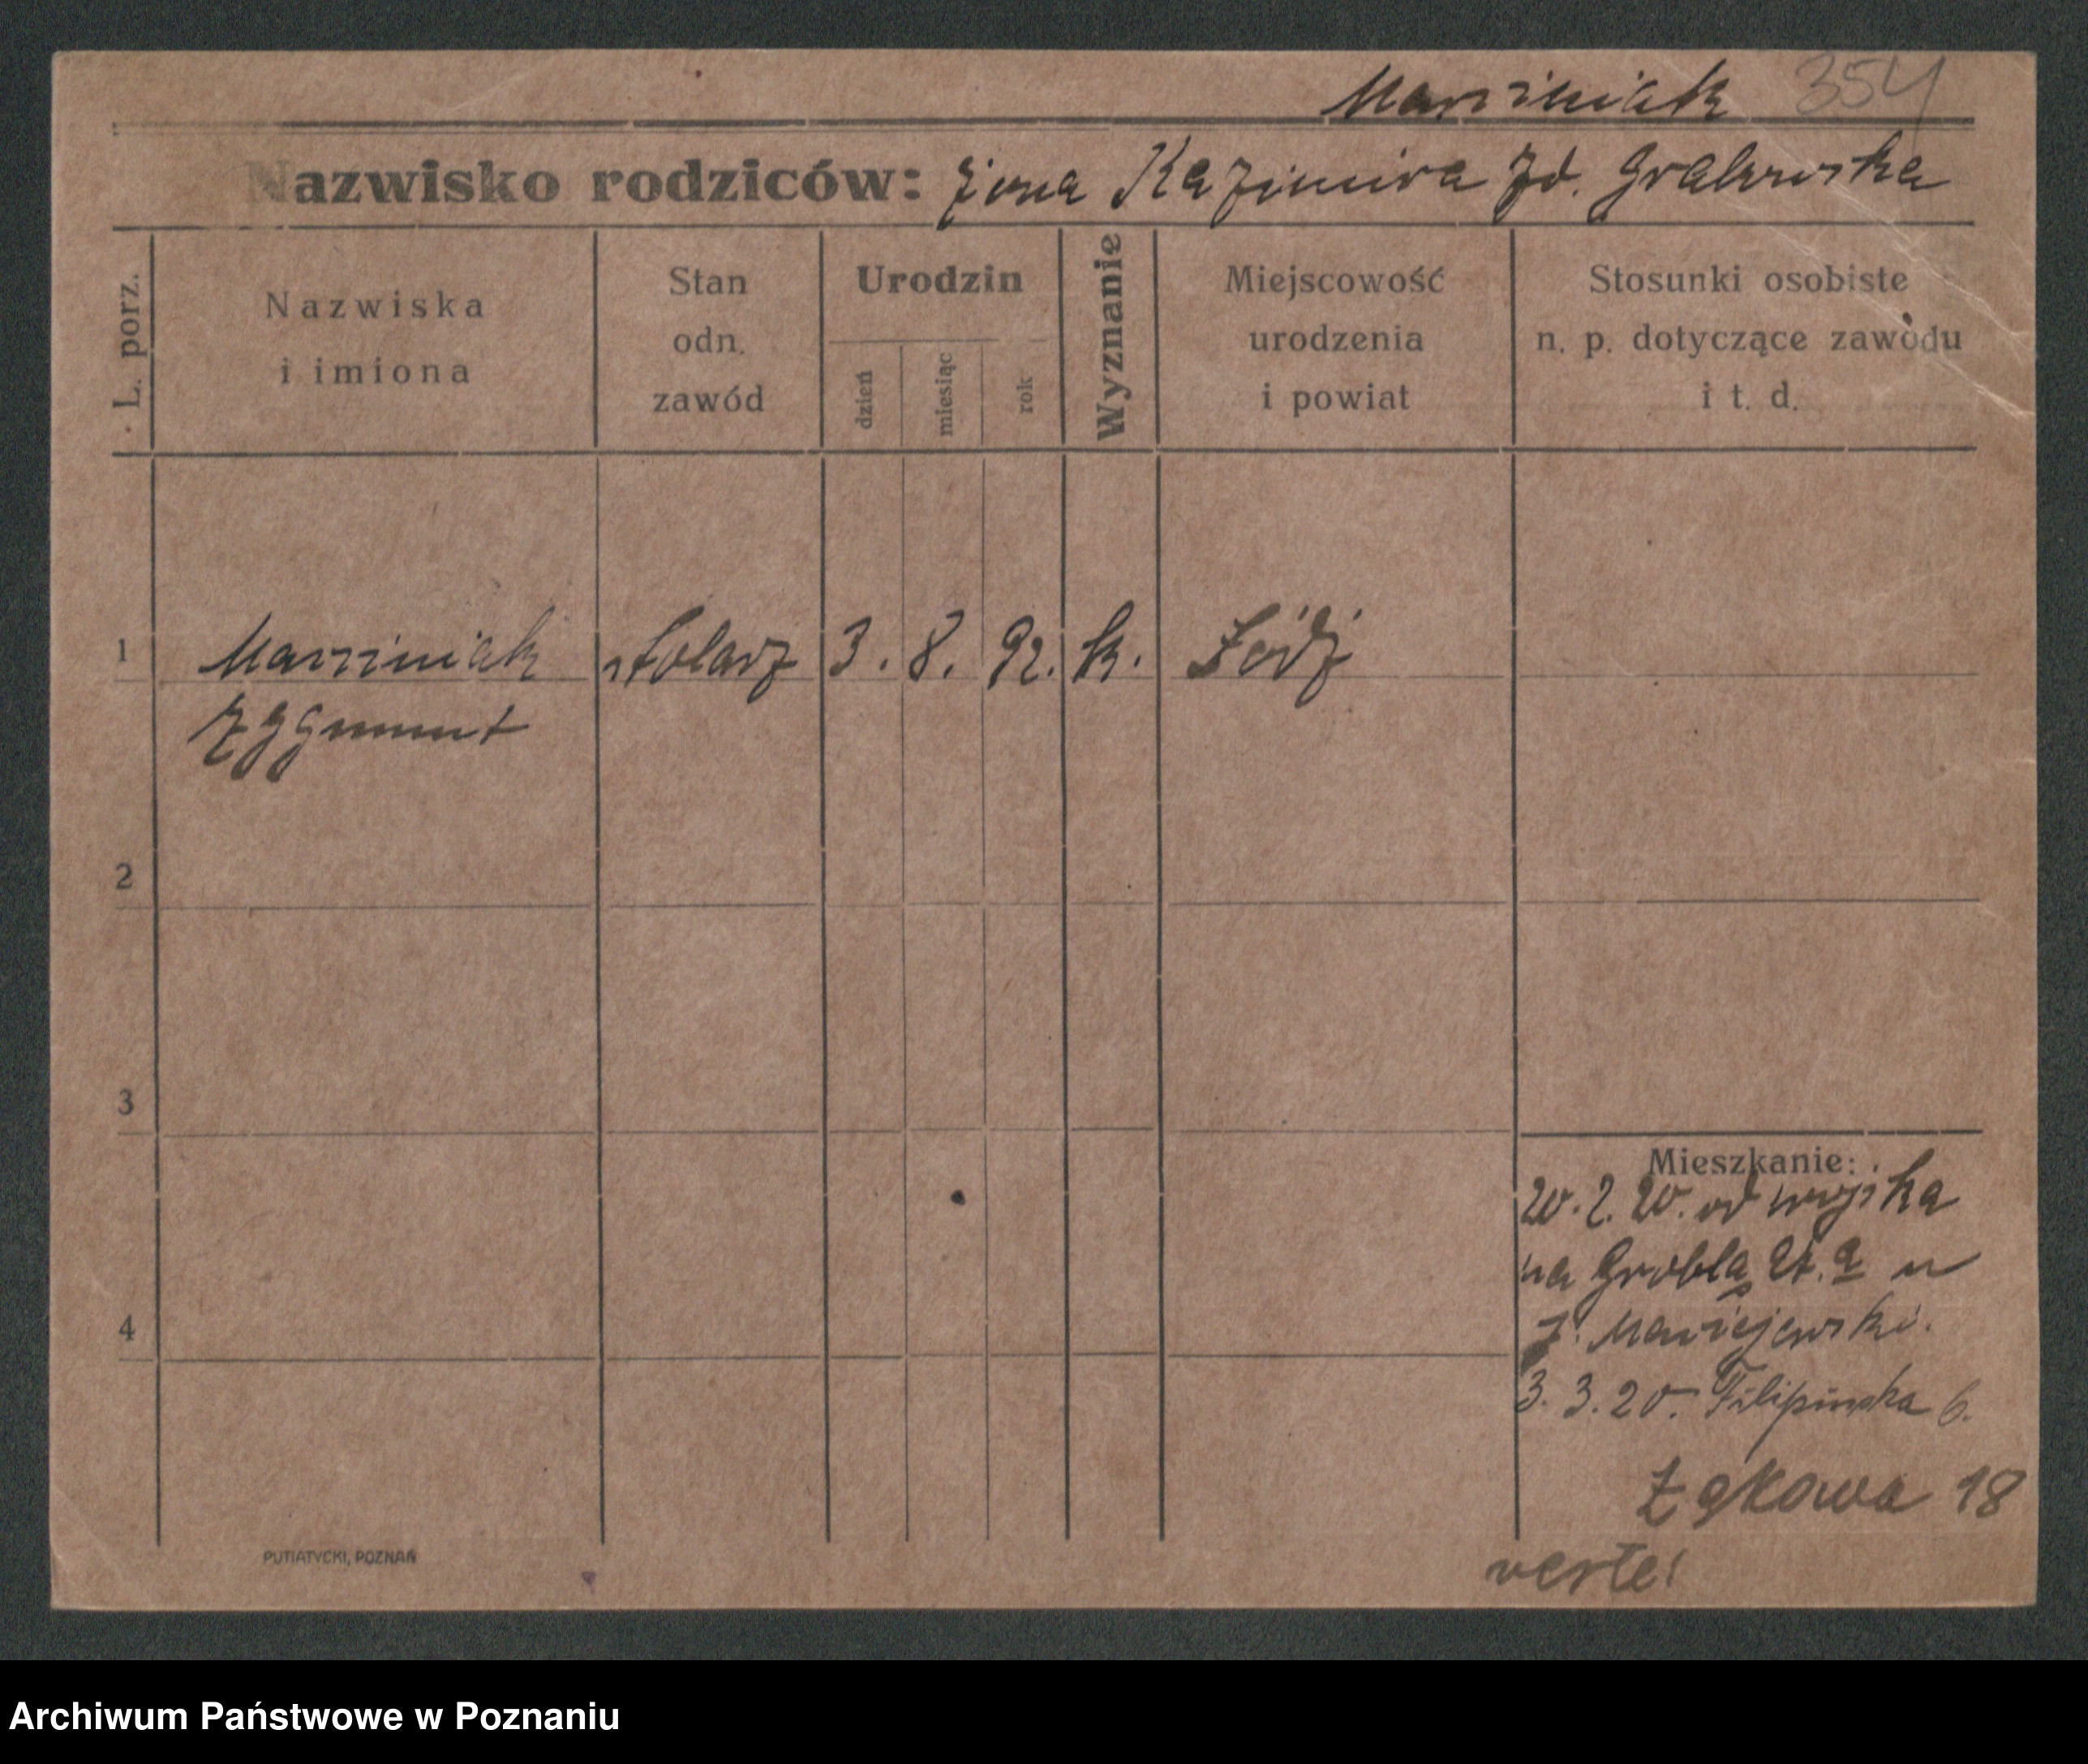 Marciniak 354
Nazwisko rodziców: żona Kazimira zd. Grabowska
L. porz.
Nazwiska
i imiona
Stan
odn.
zawód
Urodzin
dzień
miesiąc
rok
Wyznanie
Miejscowość
urodzenia
i powiat
Stosunki osobiste
n. p. dotyczące zawodu
i t. d.
1 Marciniak stolarz 3. 8. 92. k. Łódź
Zygmunt
2
3
4
Mieszkanie:
20. 2. 20. od wojska
na Groblą 21. a u
Maciejewski.
3. 3. 20. Filipińska 6.
Łąkowa 18
verte!
PUTIATYCKI, POZNAŃ
Archiwum Państwowe w Poznaniu